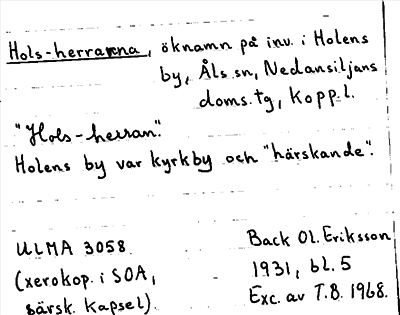 Hols-herrarna, öknamn på inv. i Holens
by, Åls sn, Nedansiljans
doms. tg, Kopp.l.
"Hols-herran".
Holens by var kyrkby och "härskande".
ULMA 3058
(xerokop. i SOA,
särsk. kapsel).
Back Ol. Eriksson
1931, bl. 5
Exc. av T.B. 1968.